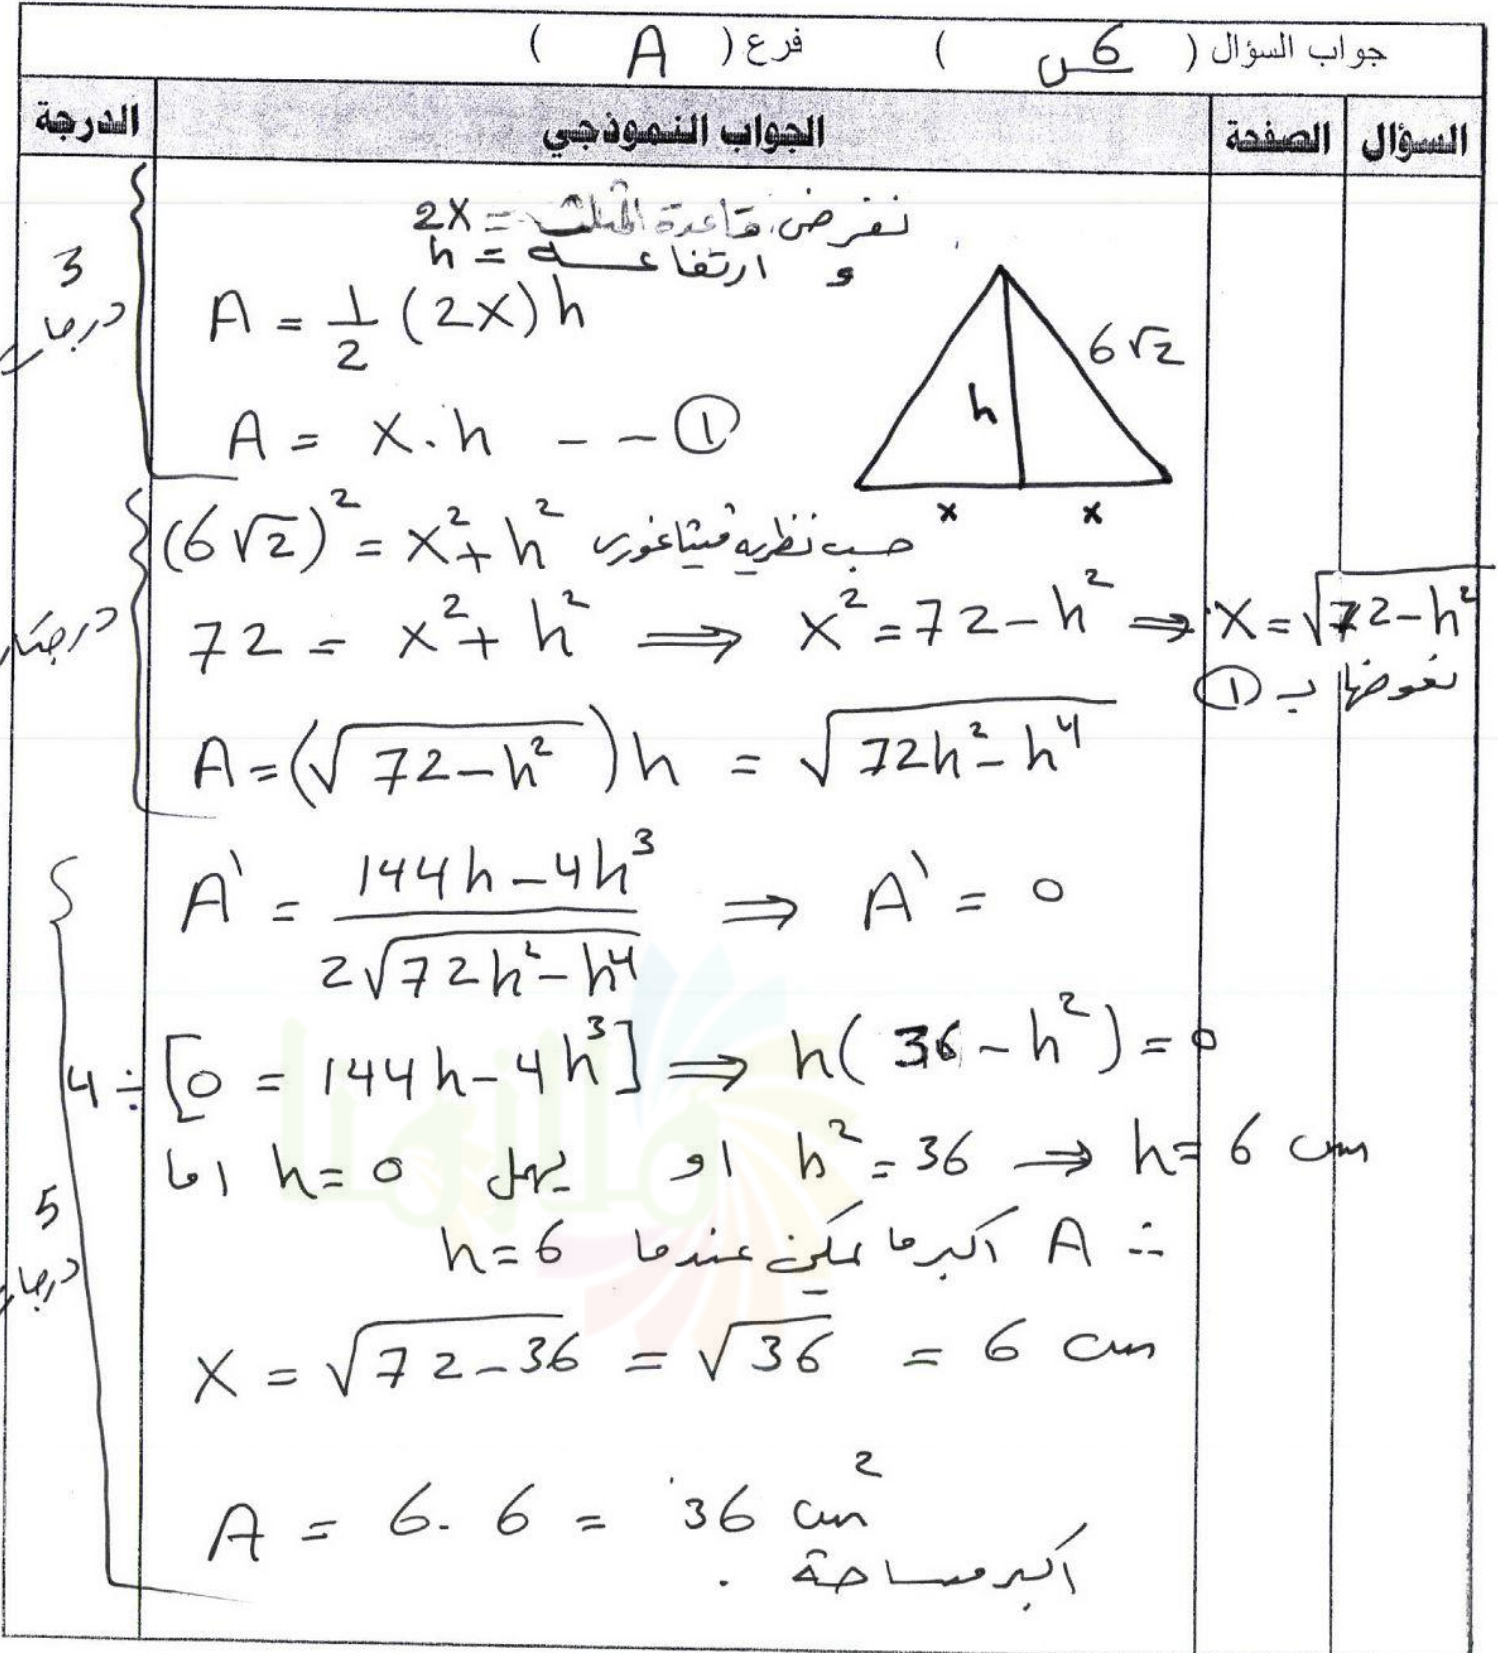 جواب السؤال ( س6 ) فرع ( A )
السؤال الصفحة الجواب النموذجي الدرجة
نفرض قاعدة المثلث = 2X
و ارتفاعه = h
A = 1/2 (2X) h
3 درجات
6√2
h
A = X . h - - ①
x x
(6√2)² = X² + h² حسب نظرية فيثاغورس
72 = X² + h² ⇒ X² = 72 - h² ⇒ X = √(72 - h²)
درجتان
نعوضها ب ①
A = (√(72 - h²)) h = √(72h² - h⁴)
A' = (144h - 4h³) / (2√(72h² - h⁴)) ⇒ A' = 0
4 ÷ [0 = 144h - 4h³] ⇒ h(36 - h²) = 0
اما h = 0 يهمل او h² = 36 ⇒ h = 6 cm
5 درجات
∴ A اكبر ما يمكن عندما h = 6
X = √(72 - 36) = √36 = 6 cm
A = 6 . 6 = 36 cm²
اكبر مساحة .